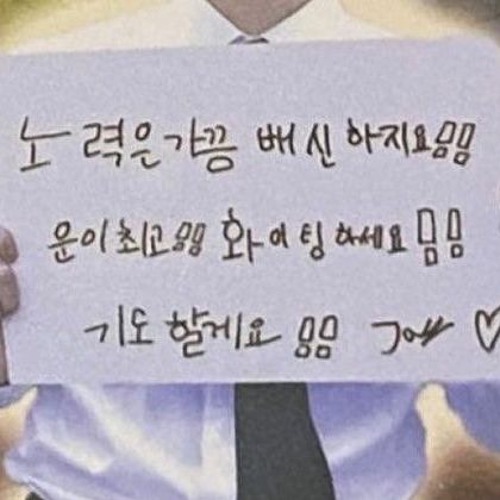 노력은 가끔 배신하지요ㅁㅁ
운이 최고ㅁㅁ 화이팅하세요ㅁㅁ
기도할게요 ㅁㅁ ♡